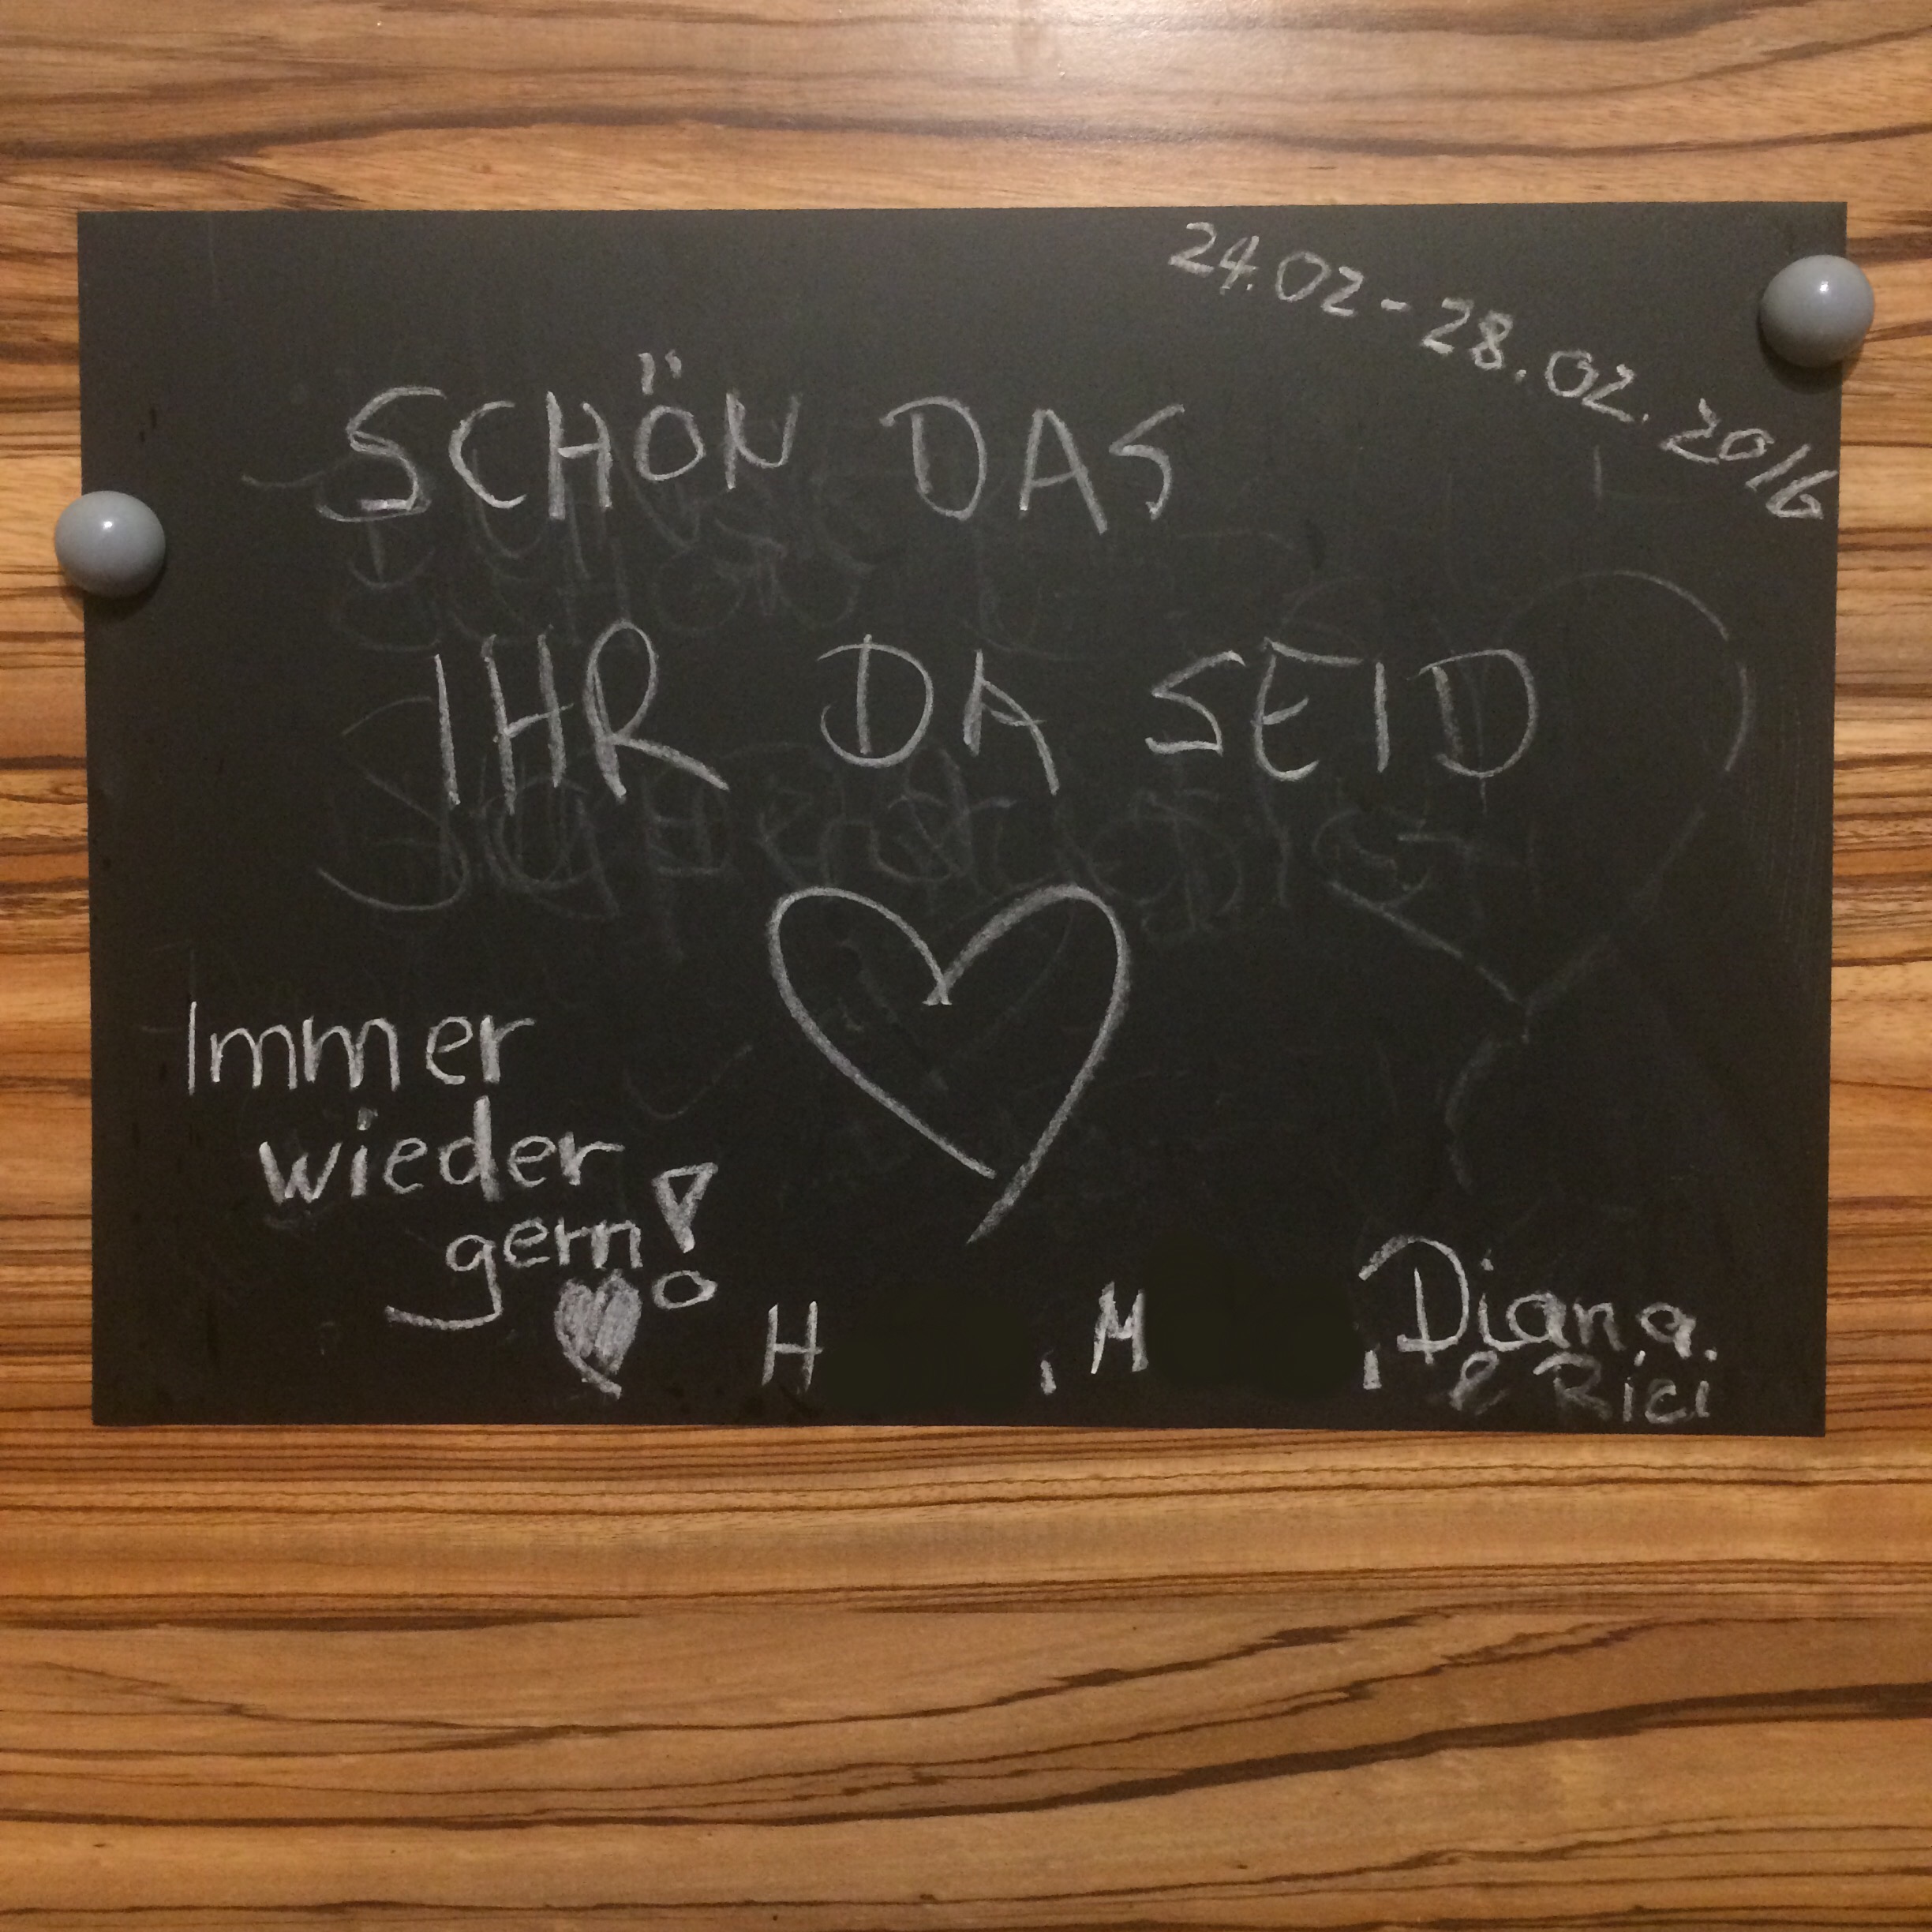 24.02-28.02.2016
SCHÖN DAS
IHR DA SEID
Immer
wieder
gern!
H , M , Diana.
& Rici